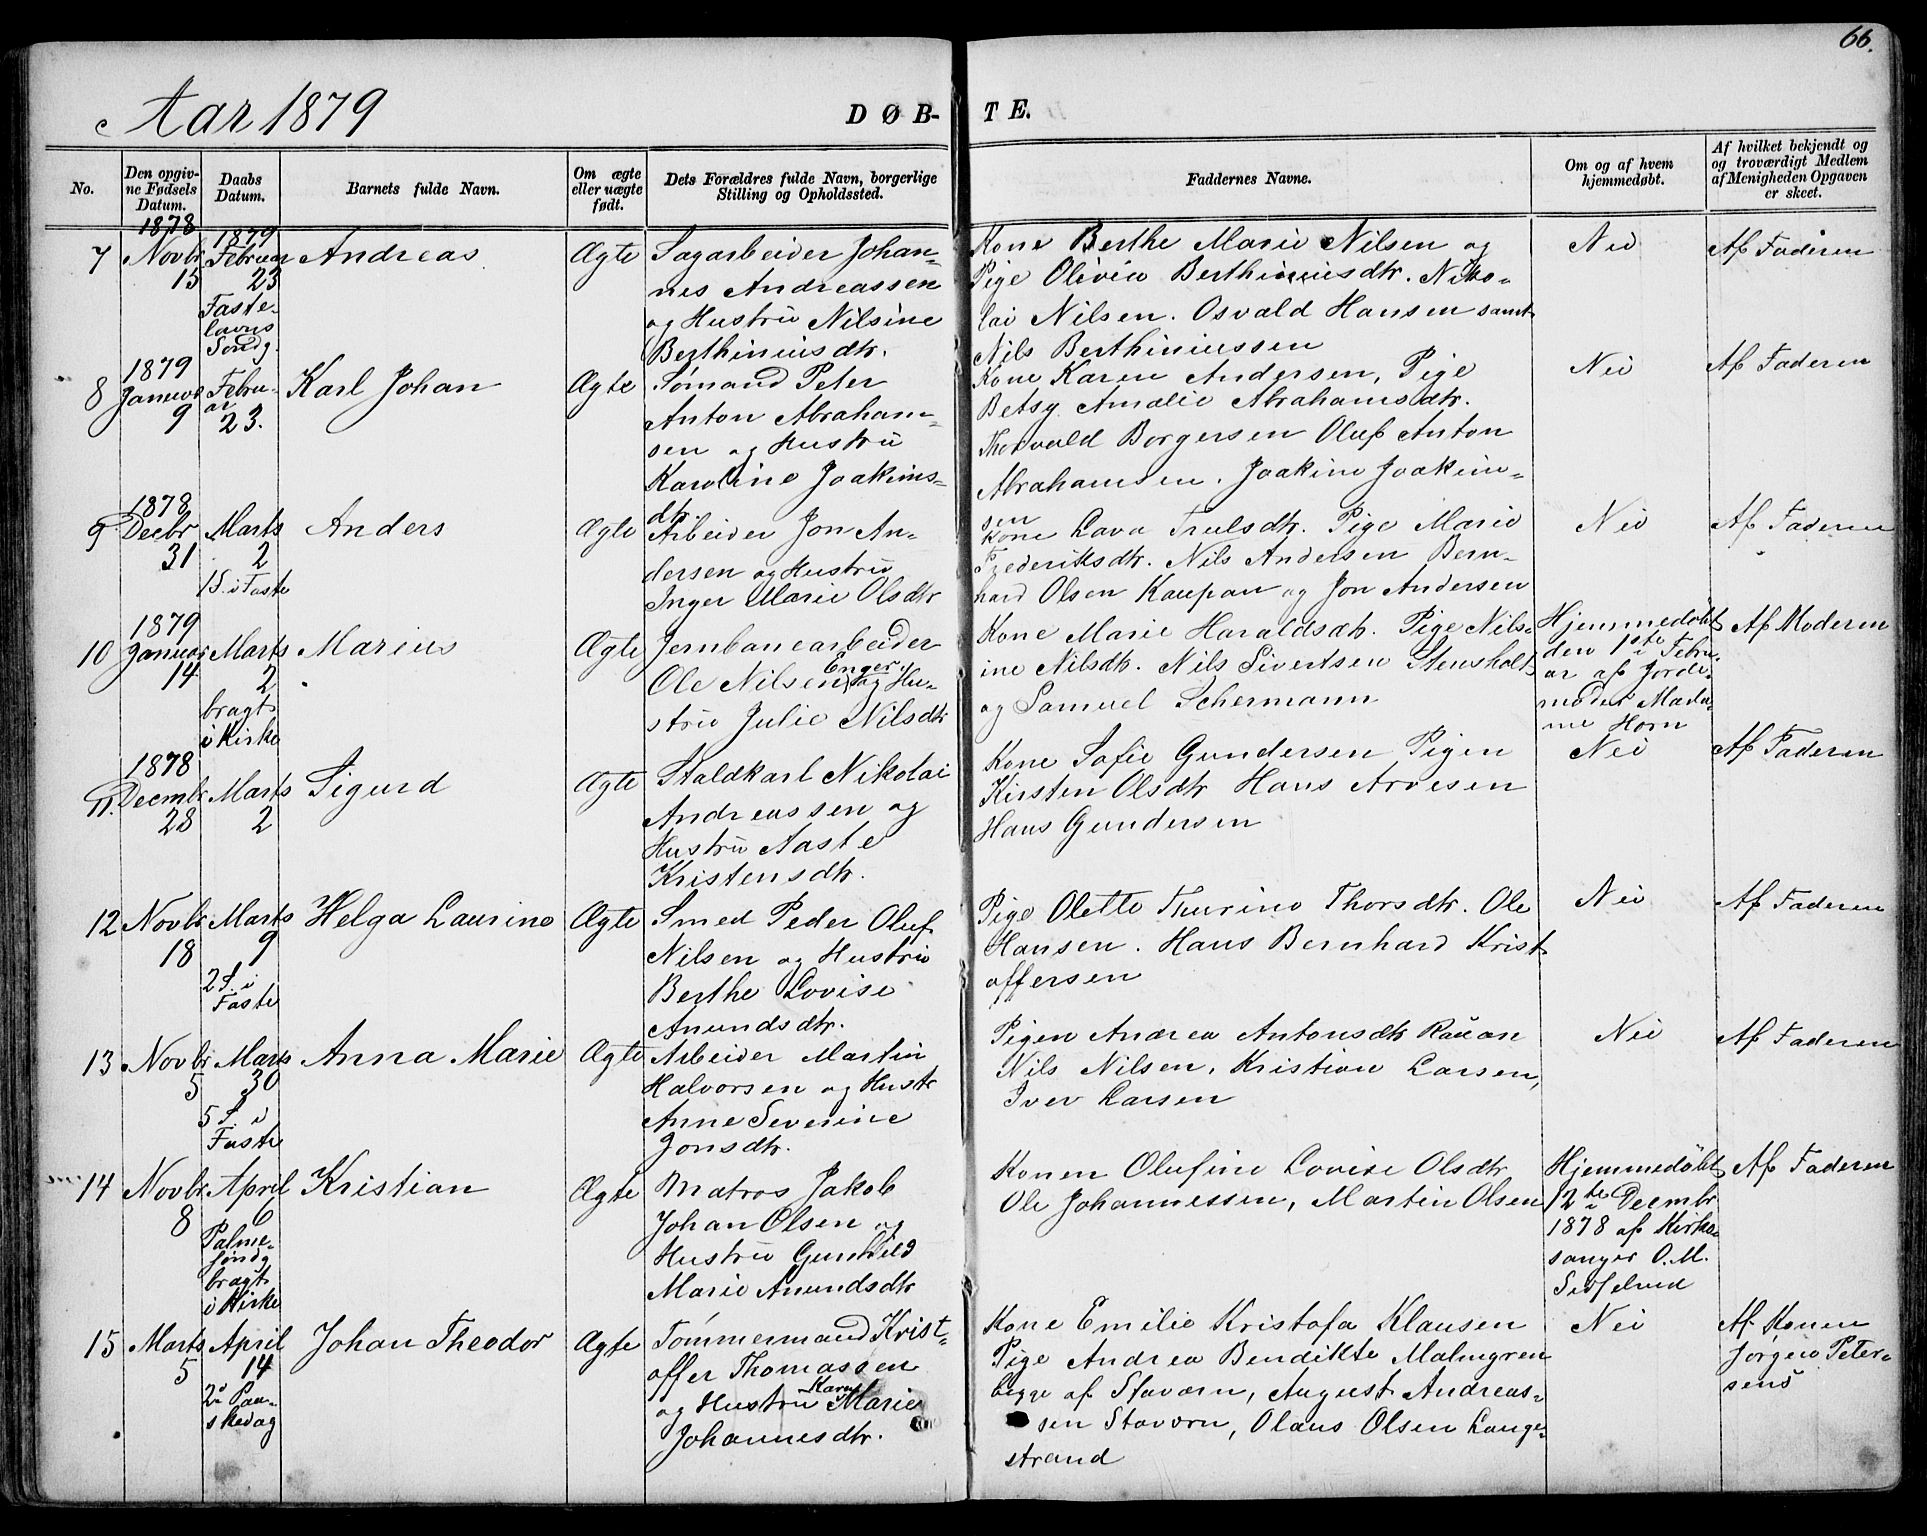 66.
Aar 1879
DØB-
TE.
No.
Den opgiv-
ne Fødsels
Datum.
Daabs
Datum.
Barnets fulde Navn.
Om ægte
eller uægte
født.
Dets Forældres fulde Navn, borgerlige
Stilling og Opholdssted.
Faddernes Navne.
Om og af hvem
hjemmedøbt.
Af hvilket bekjendt og
og troværdigt Medlem
af Menigheden Opgaven
er skeet.
7
1878
Novbr
15
1879
Februar
23
Faste-
lavns
Søndg.
Andreas
Ægte
Sagarbeider Johan-
nes Andreassen
og Hustru Nilsine
Berthiniusdtr.
Kone Berthe Marie Nilsen og
Pige Olivia Berthiniusdtr. Niko-
lai Nilsen. Osvald Hansen samt
Nils Berthiniussen
Nei
Af Faderen
8
1879
Januar
9
Febru-
ar
23.
Karl Johan
Ægte
Sømand Peter
Anton Abraham-
sen og Hustru
Karoline Joakims-
dtr.
Kone Karen Andersen, Pige
Betsy Amalie Abrahamsdtr.
Thorvald Borgersen Oluf Anton
Abrahamsen. Joakim Joakim-
sen
Nei
Af Faderen
9
1878
Decbr
31
Marts
2
1 S. i Faste
Anders
Ægte
Arbeider Jon An-
dersen og Hustru
Inger Marie Olsdtr
Kone Lava Trulsdtr. Pige Marie
Frederiksdtr. Nils Andersen Bern-
hard Olsen Kaupan og Jon Andersen
Nei
Af Faderen
10
1879
Januar
14
Marts
2
bragt
i Kirke
Marius
Ægte
Jernbanearbeider
Ole Nilsen Enger og Hu-
stru Julie Nilsdtr
Kone Marie Haraldsdtr. Pige Nils-
ine Nilsdtr. Nils Sivertsen Stensholt
og Samuel Schermann
Hjemmedøbt
den 1ste Febru-
ar af Jorde-
moder Mada-
me Horn
Af Moderen
11.
1878
Decmbr
28
Marts
2
Sigurd
Ægte
Staldkarl Nikolai
Andreassen og
Hustru Aaste
Kristensdtr.
Kone Sofie Gundersen Pigen
Kirsten Olsdtr Hans Arvesen
Hans Gundersen
Nei
Af Faderen
12
Novbr
18
Marts
9
2 S. i
Faste
Helga Laurine
Ægte
Smed Peder Oluf
Nilsen og Hustru
Berthe Lovise
Anundsdtr.
Pige Olette Thurine Thorsdtr. Ole
Hansen. Hans Bernhard Krist
offersen
Nei
Af Faderen
13
Novbr
5
Marts
30
5 S. i
Faste
Anna Marie
Ægte
Arbeider Martin
Halvorsen og Hustr
Anne Severine
Jonsdtr.
Pigen Andrea Antonsdtr Rauan
Nils Nilsen, Kristian Larsen,
Iver Larsen
Nei
Af Faderen
14
Novbr
8
April
6
Palme-
søndg
bragt
i Kirke
Kristian
Ægte
Matros Jakob
Johan Olsen og
Hustru Gunhild
Marie Anundsdtr
Konen Olufine Lovise Olsdtr
Ole Johannessen, Martin Olsen
Hjemmedøbt
12te Decmbr
1878 af Kirke-
sanger O. M.
Af Faderen
15
Marts
5
April
14
2 Paa-
skedag
Johan Theodor
Ægte
Tømmermand Krist-
offer Thomassen
og Hustru Karen Marie
Johannesdtr.
Kone Emilie Kristofa Klausen
Pige Andrea Bendikte Malmgren
begge af Staværn, August Andreas-
sen Stavern, Olaus Olsen Lange-
strand
Nei
Af Konen
Jørgen Peter-
sens